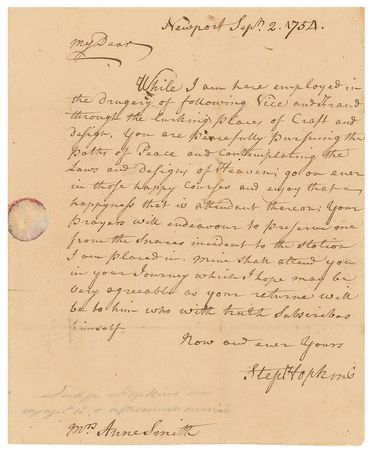 Newport Septr. 2. 1754.
My Dear
While I am here employed in
the drugery of following Vice and Fraud
through the Lurking places of Craft and
design, You are peacefully Pursuing the
Paths of Peace and Contemplating the
Laws and designs of Heaven; go on ever
in those happy Courses and enjoy that
happyness that is attendant thereon; Your
Prayers will endeavour to preserve me
from the Snares incident to the Station
I am placed in. Mine Shall attend you
in your Journey which I hope may be
very agreeable as your returne will
be to him who with truth Subscribes
himself.
Now and ever Yours
Step Hopkins
Judge Hopkins was
afterwards married
Mrs Anne Smith